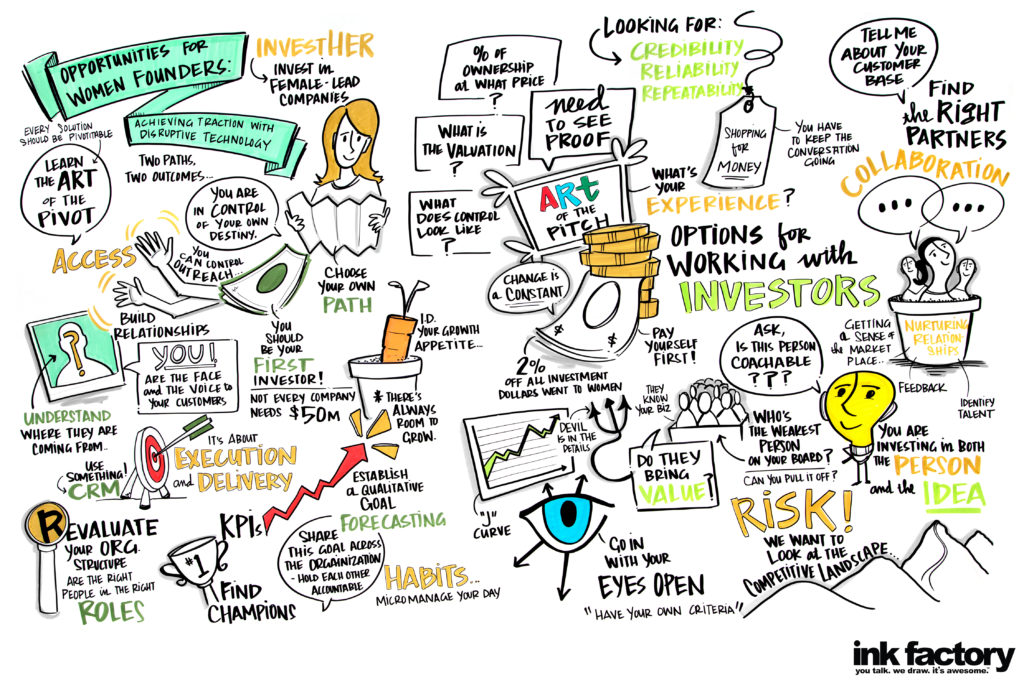 OPPORTUNITIES FOR
WOMEN FOUNDERS:
ACHIEVING TRACTION WITH
DISRUPTIVE TECHNOLOGY
INVESTHER
INVEST in
FEMALE-LEAD
COMPANIES
EVERY SOLUTION
SHOULD BE PIVOTITABLE
LEARN
THE ART
OF THE
PIVOT
TWO PATHS,
TWO OUTCOMES...
YOU ARE
IN CONTROL
OF YOUR OWN
DESTINY.
ACCESS
YOU
CAN CONTROL
OUTREACH...
CHOOSE
YOUR OWN
PATH
BUILD
RELATIONSHIPS
?
YOU!
ARE THE FACE
and THE VOICE to
YOUR CUSTOMERS
UNDERSTAND
WHERE THEY ARE
COMING FROM..
YOU
SHOULD
BE YOUR
FIRST
INVESTOR!
NOT EVERY COMPANY
NEEDS $50M
I.D.
YOUR GROWTH
APPETITE...
* THERE'S
ALWAYS
ROOM TO
GROW.
USE
SOMETHING!
CRM
IT'S ABOUT
EXECUTION
and DELIVERY
ESTABLISH
a QUALITATIVE
GOAL
FORECASTING
R
REVALUATE
YOUR ORG.
STRUCTURE
ARE THE RIGHT
PEOPLE in THE RIGHT
ROLES
KPIs
#1
FIND
CHAMPIONS
SHARE
THIS GOAL ACROSS
THE ORGAINIZATION
- HOLD EACH OTHER
ACCOUNTABLE
HABITS...
MICRO MANAGE YOUR DAY
% OF
OWNERSHIP
at WHAT PRICE
?
WHAT IS
THE VALUATION
?
WHAT
DOES CONTROL
LOOK LIKE
?
NEED
TO SEE
PROOF
ART
OF THE
PITCH
LOOKING FOR:
CREDIBILITY
RELIABILITY
REPEATABILITY
SHOPPING
for
MONEY
YOU HAVE
to KEEP THE
CONVERSATION
GOING
WHAT'S
YOUR
EXPERIENCE?
TELL ME
ABOUT YOUR
CUSTOMER
BASE
FIND
the RIGHT
PARTNERS
COLLABORATION
...
...
CHANGE IS
a CONSTANT
$
$
OPTIONS for
WORKING with
INVESTORS
PAY
YOURSELF
FIRST!
2%
OFF ALL INVESTMENT
DOLLARS WENT TO WOMEN
ASK,
IS THIS PERSON
COACHABLE
? ? ?
GETTING
a SENSE of
the MARKET
PLACE...
NURTURING
RELATION-
SHIPS
FEEDBACK
IDENTIFY
TALENT
DEVIL
IS IN THE
DETAILS
"J"
CURVE
THEY
KNOW
YOUR BIZ
DO THEY
BRING
VALUE?
WHO'S
THE WEAKEST
PERSON
ON YOUR BOARD?
CAN YOU PULL IT OFF?
YOU ARE
INVESTING in BOTH
the PERSON
and the IDEA
GO IN
WITH YOUR
EYES OPEN
"HAVE YOUR OWN CRITERIA"
RISK!
WE WANT TO
LOOK at THE
COMPETITIVE LANDSCAPE...
ink factory
you talk. we draw. it's awesome.